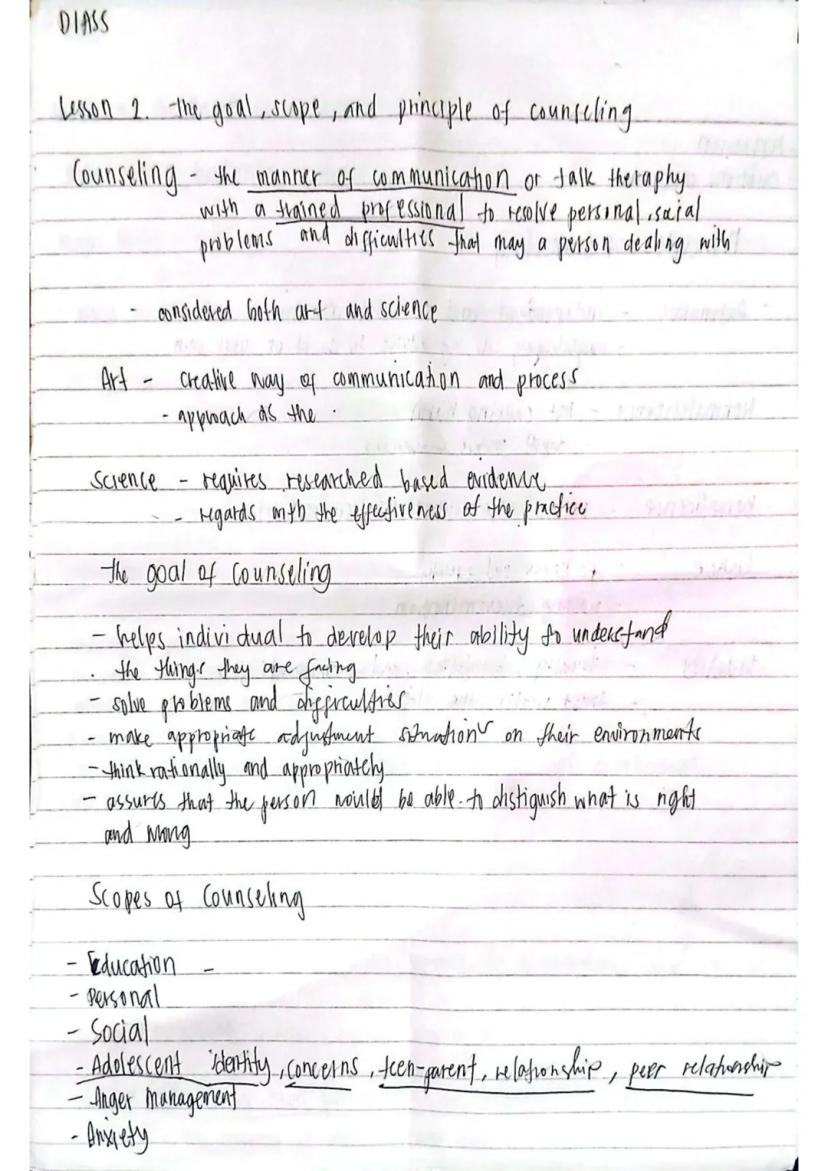 DIASS
Lesson 2. the goal, scope, and principle of counseling
Counseling - the manner of communication or talk theraphy
with a trained professional to resolve personal, social
problems and difficulties that may a person dealing with
- considered both art and science
Art - creative way of communication and process
- approach as the
Science - requires researched based evidence
- regards with the effectiveness of the practice
the goal of Counseling
- helps individual to develop their ability to understand
the things they are facing
- solve problems and difficulties
- make appropriate adjustment situations on their environments
- think rationally and appropriately
- assures that the person would be able to distiguish what is right
and wrong
Scopes of Counseling
- Education -
- Personal
- Social
- Adolescent identity, concerns, teen-parent, relationship, peer relationship
- Anger management
- Anxiety